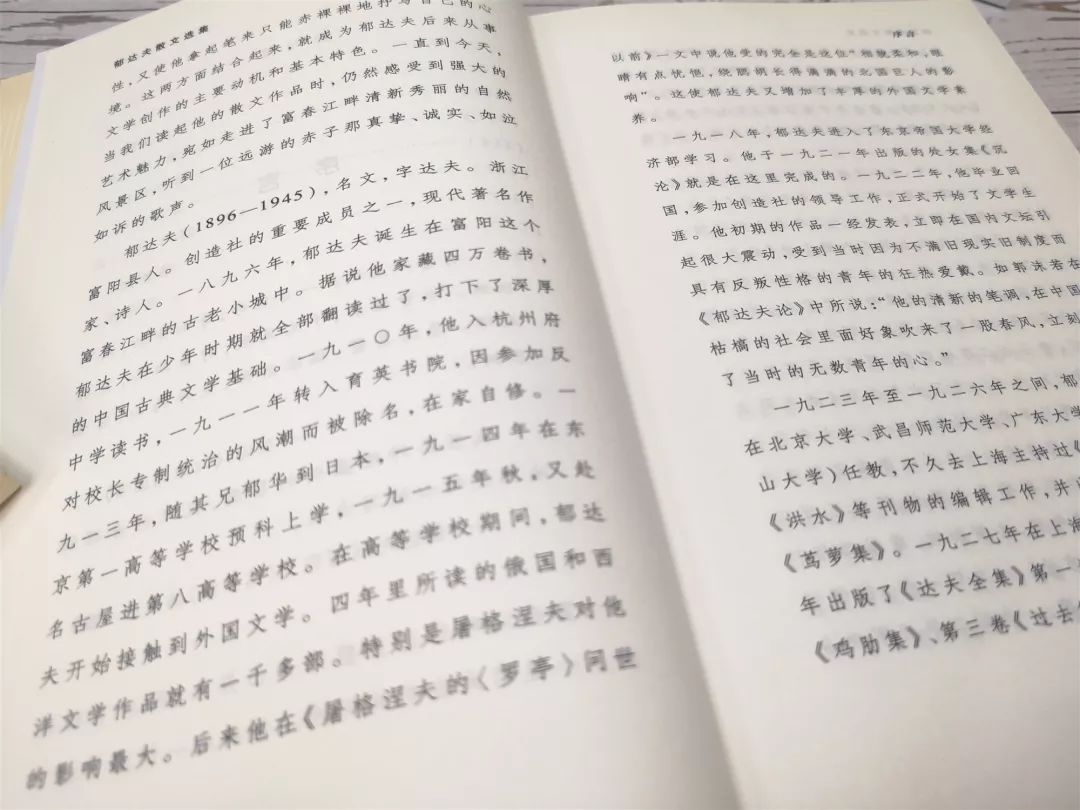 郁达夫散文选集
性,又使他拿起笔来只能赤裸裸地抒写自己的心
境。这两方面结合起来,就成为郁达夫后来从事
文学创作的主要动机和基本特色。一直到今天,
当我们读起他的散文作品时,仍然感受到强大的
艺术魅力,宛如走进了富春江畔清新秀丽的自然
风景区,听到一位远游的赤子那真挚、诚实、如泣
如诉的歌声。
郁达夫(1896—1945),名文,字达夫。浙江
富阳县人。创造社的重要成员之一,现代著名作
家、诗人。一八九六年,郁达夫诞生在富阳这个
富春江畔的古老小城中。据说他家藏四万卷书,
郁达夫在少年时期就全部翻读过了,打下了深厚
的中国古典文学基础。一九一〇年,他入杭州府
中学读书,一九一一年转入育英书院,因参加反
对校长专制统治的风潮而被除名,在家自修。一
九一三年,随其兄郁华到日本,一九一四年在东
京第一高等学校预科上学,一九一五年秋,又赴
名古屋进第八高等学校。在高等学校期间,郁达
夫开始接触到外国文学。四年里所读的俄国和西
洋文学作品就有一千多部。特别是屠格涅夫对他
的影响最大。后来他在《屠格涅夫的〈罗亭〉问世
序言
以前》一文中说他受的完全是这位“相貌柔和,眼
睛有点忧悒,绕腮胡长得满满的北国巨人的影
响”。这使郁达夫又增加了丰厚的外国文学素
养。
一九一八年,郁达夫进入了东京帝国大学经
济部学习。他于一九二一年出版的处女集《沉
沦》就是在这里完成的。一九二二年,他毕业回
国,参加创造社的领导工作,正式开始了文学生
涯。他初期的作品一经发表,立即在国内文坛引
起很大震动,受到当时因为不满旧现实旧制度而
具有反叛性格的青年的狂热爱戴。如郭沫若在
《郁达夫论》中所说:“他的清新的笔调,在中国
枯槁的社会里面好象吹来了一股春风,立刻
了当时的无数青年的心。”
一九二三年至一九二六年之间,郁
在北京大学、武昌师范大学、广东大
山大学)任教,不久去上海主持过《
《洪水》等刊物的编辑工作,并
《茑萝集》。一九二七年在上海
年出版了《达夫全集》第一
《鸡肋集》、第三卷《过去